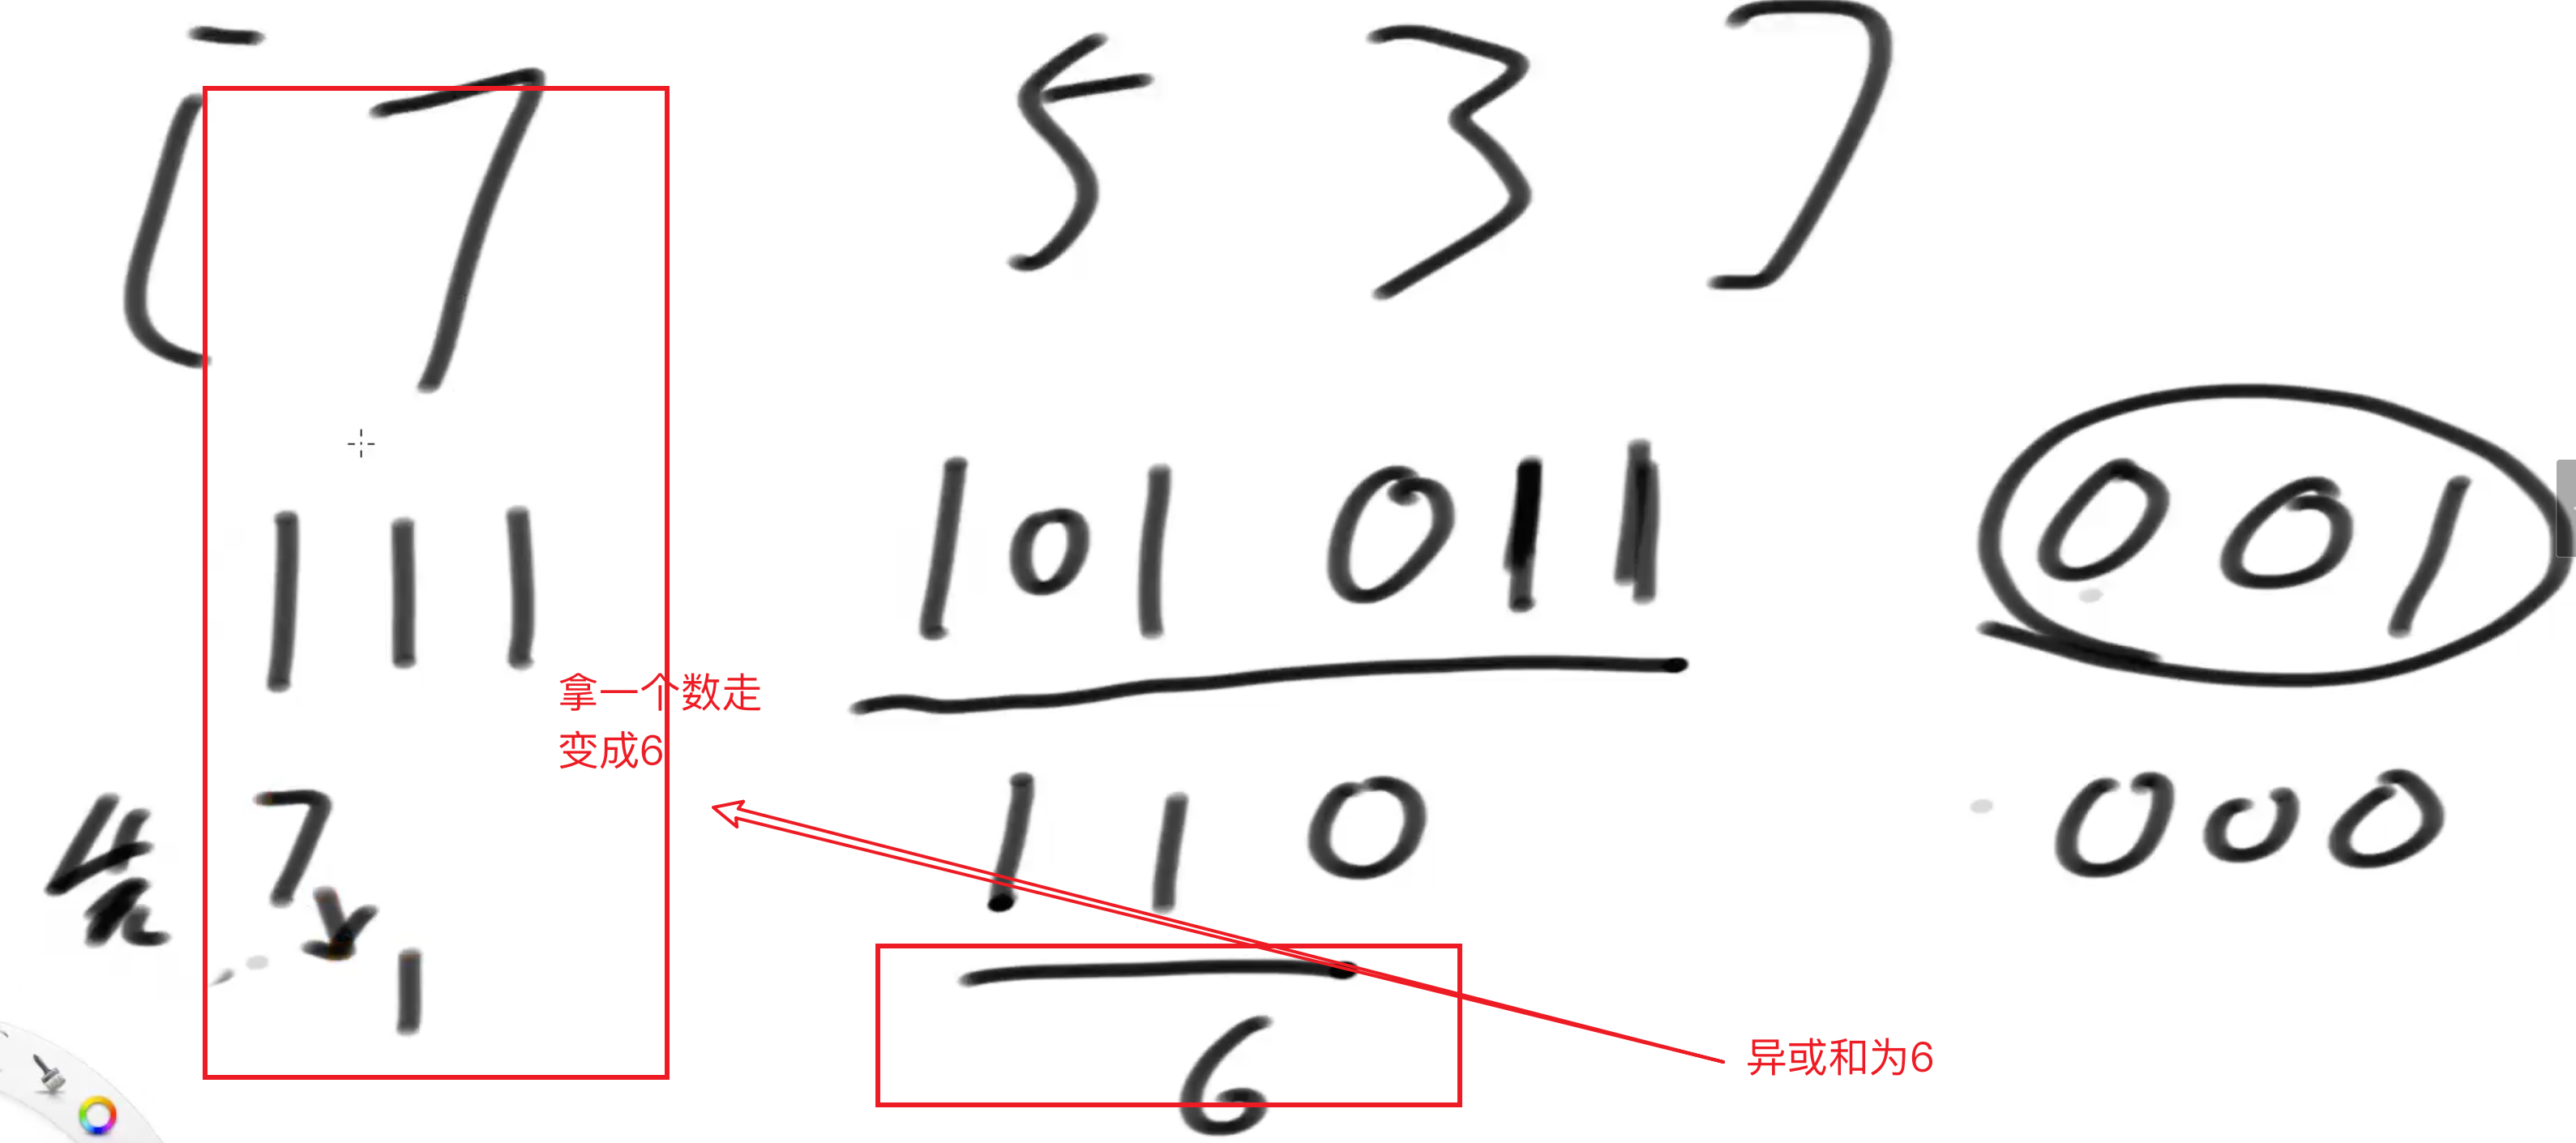 [ 7 5 3 ]
111 101 011 001
拿一个数走
变成6
7 110 000
1
6
异或和为6